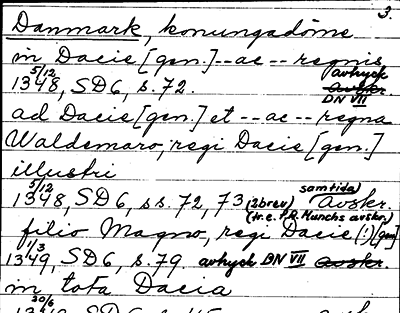 3.
Danmark, konungadöme
in Dacie [gen.] -- ac -- regnis
5/12 avtryck
1348, SD6, s. 72. avskr.
DN VII
ad Dacie [gen.] et -- ac -- regna
Waldemaro, regi Dacie [gen.]
illustri
5/12 samtida
1348, SD6, ss. 72, 73 (2brev) avskr.
(tr. e. P.A. Munchs avskr.)
filio Magno, regi Dacie (:) [gen]
1/3
1349, SD6, s. 79. avtryck DN VII avskr.
in tota Dacia
20/6